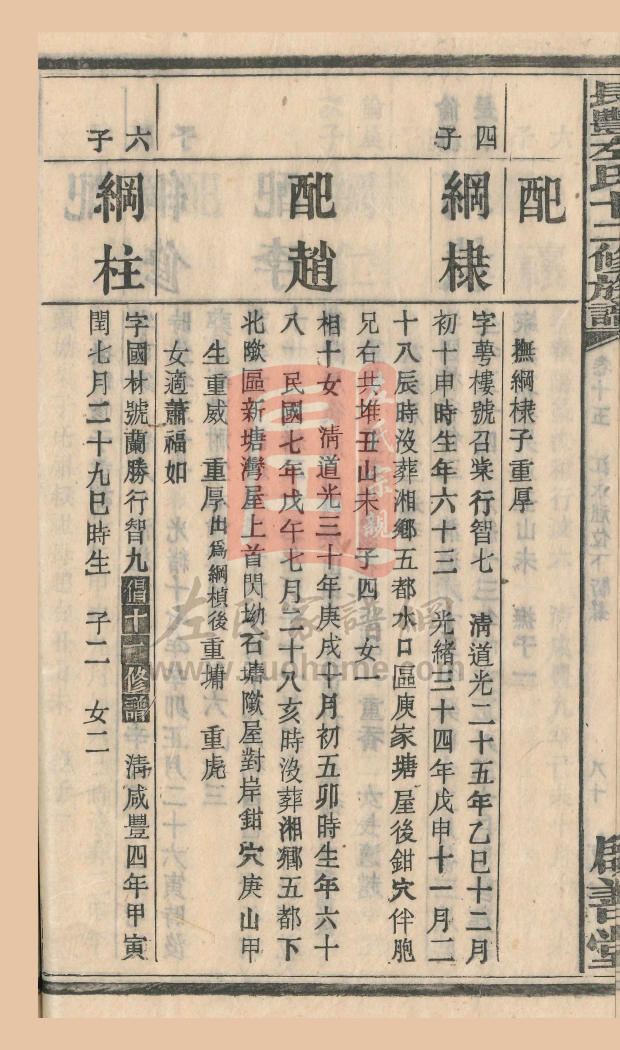 長豐左氏十二修族譜
卷十五
八十
啟善堂
配
撫綱棣子重厚
四子
綱棣
字萼樓號召棠行智七 清道光二十五年乙巳十二月
初十申時生年六十三 光緒三十四年戊申十一月二
十八辰時沒葬湘鄉五都水口區庚家塘屋後鉗穴伴胞
兄右共堆丑山未 子四 女一
配趙
相十女 清道光三十年庚戌十月初五卯時生年六十
八 民國七年戊午七月二十八亥時沒葬湘鄉五都下
北隞區新塘灣屋上首閃坳石塘隞屋對岸鉗穴庚山甲
生重威 重厚出為綱楨後重墉 重虎
女適蕭福如
六子
綱柱
字國林號蘭勝行智九倡十一修譜 清咸豐四年甲寅
閏七月二十九巳時生 子二 女二
左氏家譜網
www.zuohome.com